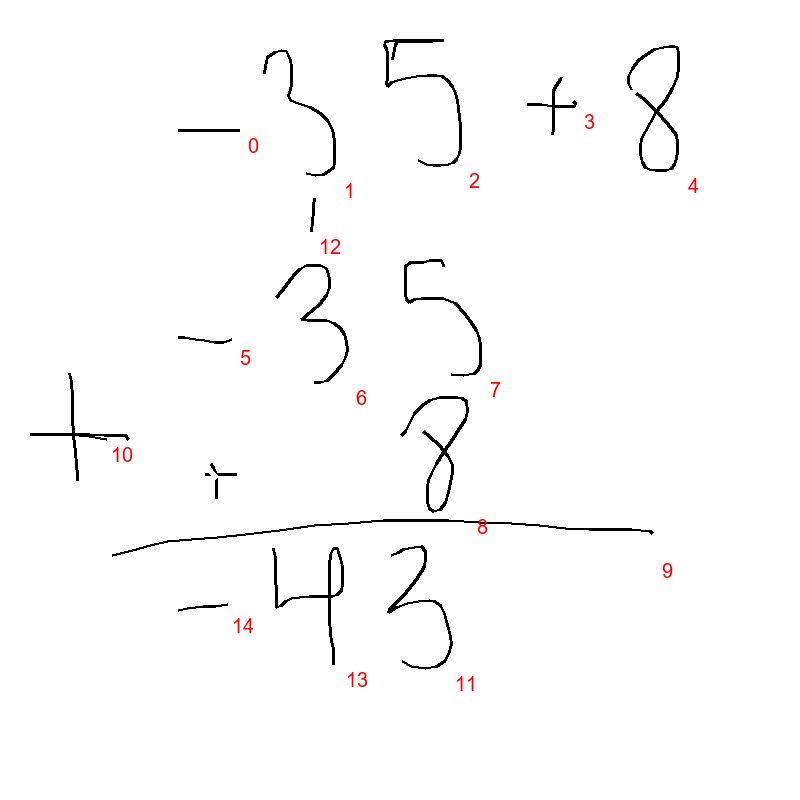 - 3 5 + 8
0 1 2 3 4
1
12
- 3 5
5 6 7
+ + 8
10 8
9
- 4 3
14 13 11